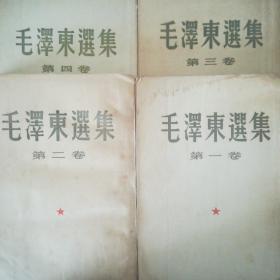 毛澤東選集
第四卷
毛澤東選集
第三卷
毛澤東選集
第二卷
毛澤東選集
第一卷